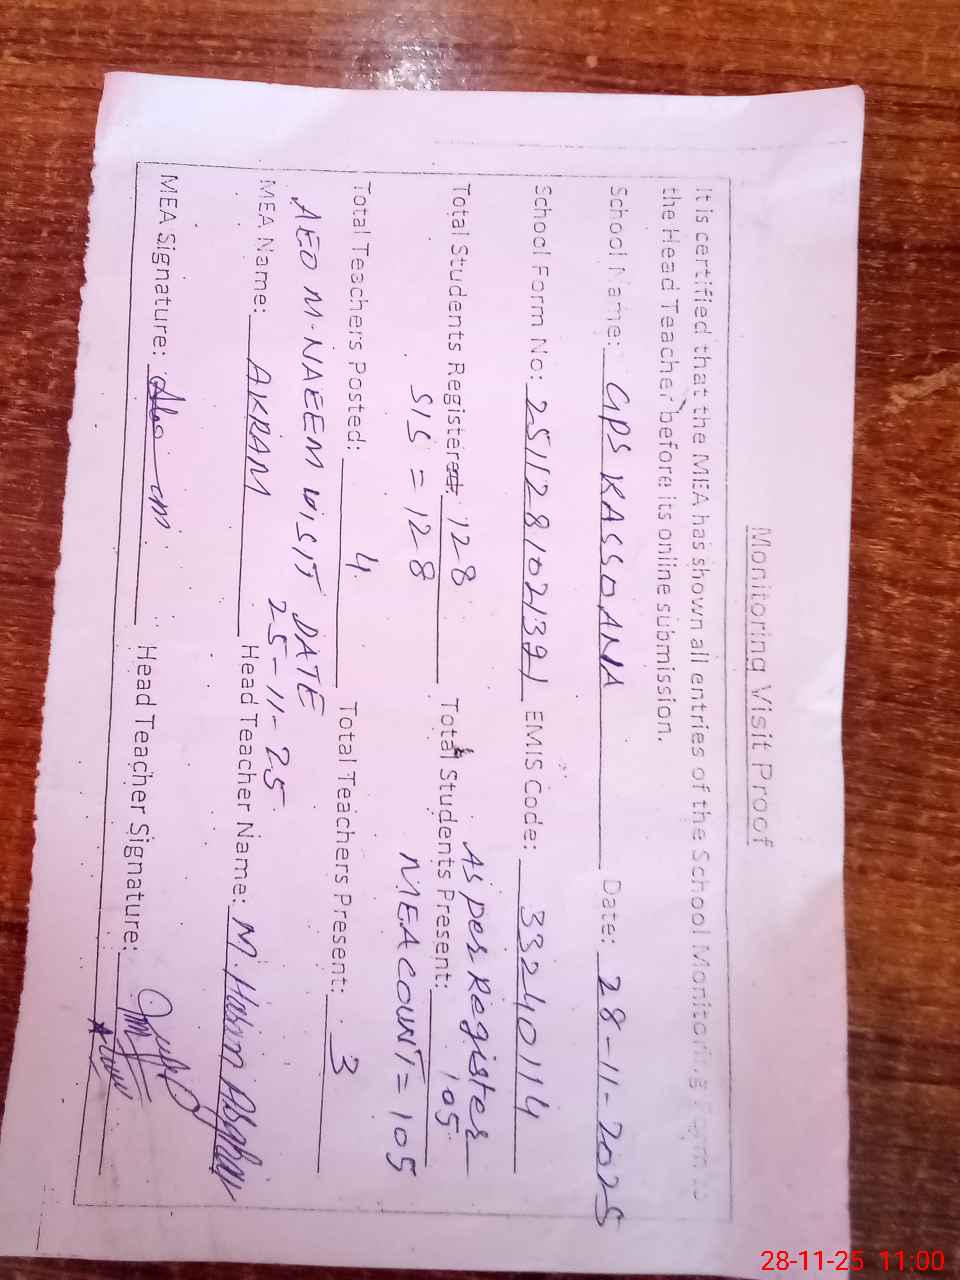 Monitoring Visit Proof
It is certified that the MEA has shown all entries of the School Monitoring Form to
the Head Teacher before its online submission.
School Name: GPS KASSOANA Date: 28-11-2025
School Form No: 2511281021391 EMIS Code: 33240114
As per Register
Total Students Registered: 128 Total Students Present: 105
SIS = 128 MEA COUNT = 105
Total Teachers Posted: 4 Total Teachers Present: 3
AEO M. NAEEM VISIT DATE
25-11-25
MEA Name: AKRAM Head Teacher Name: M. Asghar
MEA Signature: Head Teacher Signature:
28-11-25 11:00